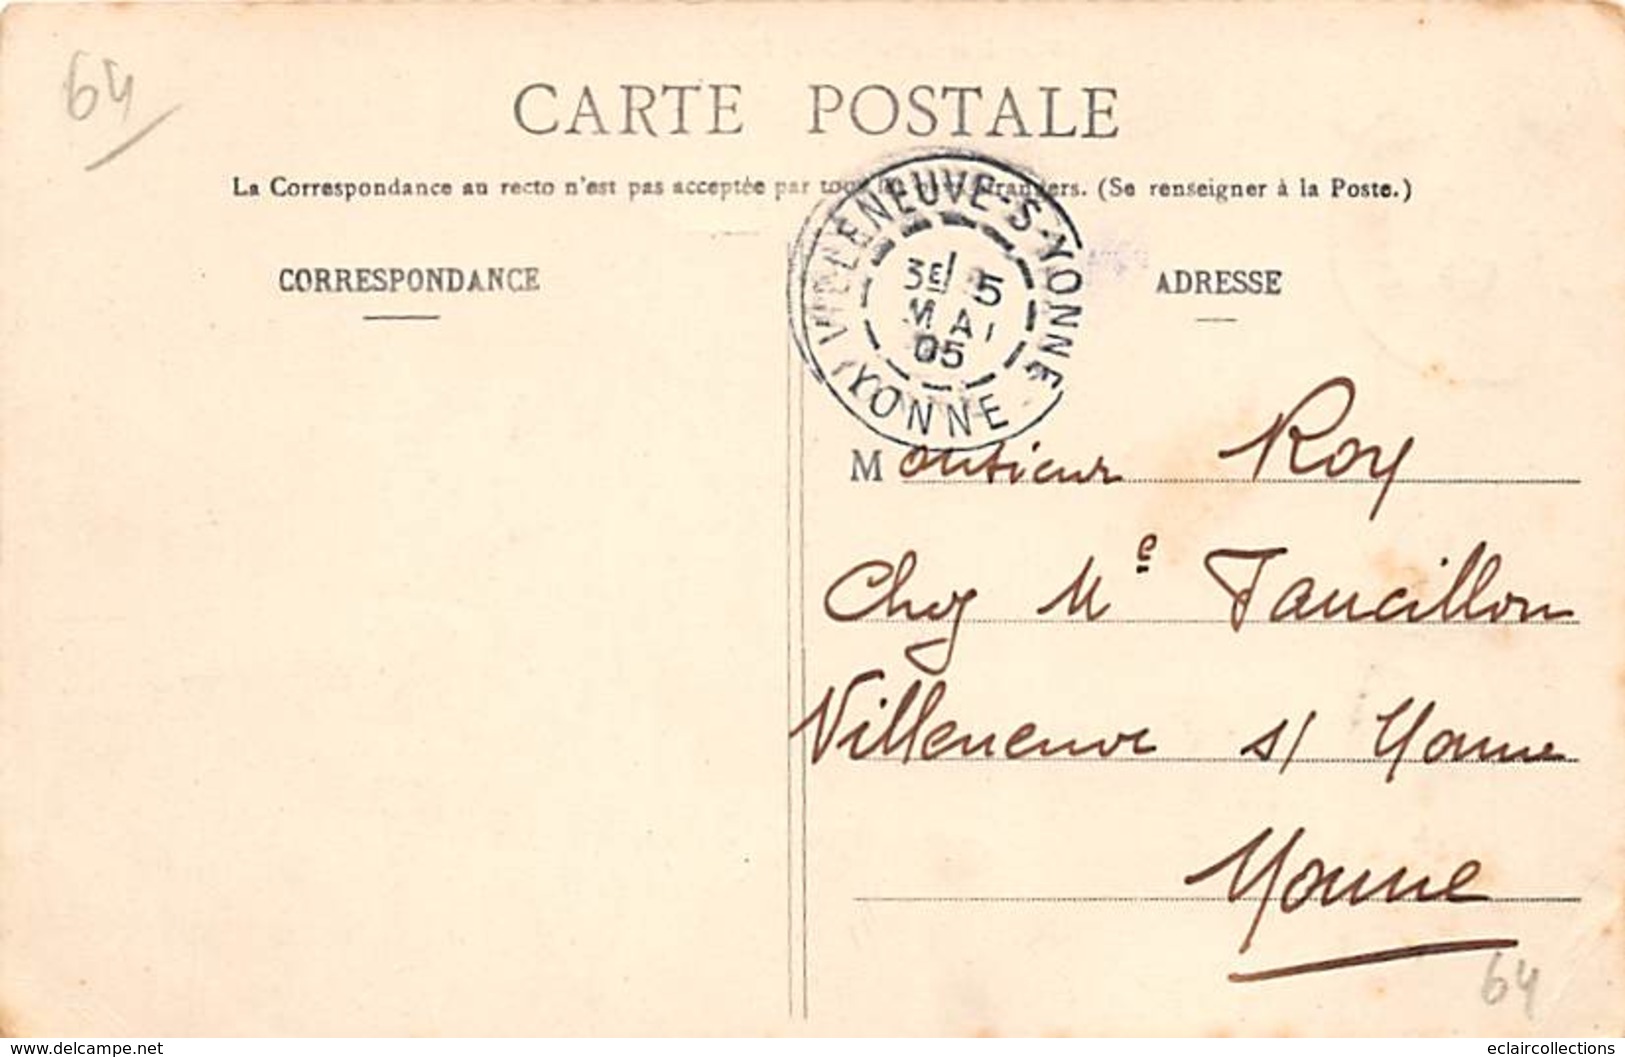 64
CARTE POSTALE
La Correspondance au recto n'est pas acceptée par tous les pays étrangers. (Se renseigner à la Poste.)
CORRESPONDANCE
ADRESSE
VILLENEUVE-S-YONNE
3E 5
MAI
05
YONNE
Monsieur Roy
Chez Me Taucillon
Villeneuve s/ Yonne
Yonne
64
delcampe.net
eclaircollections